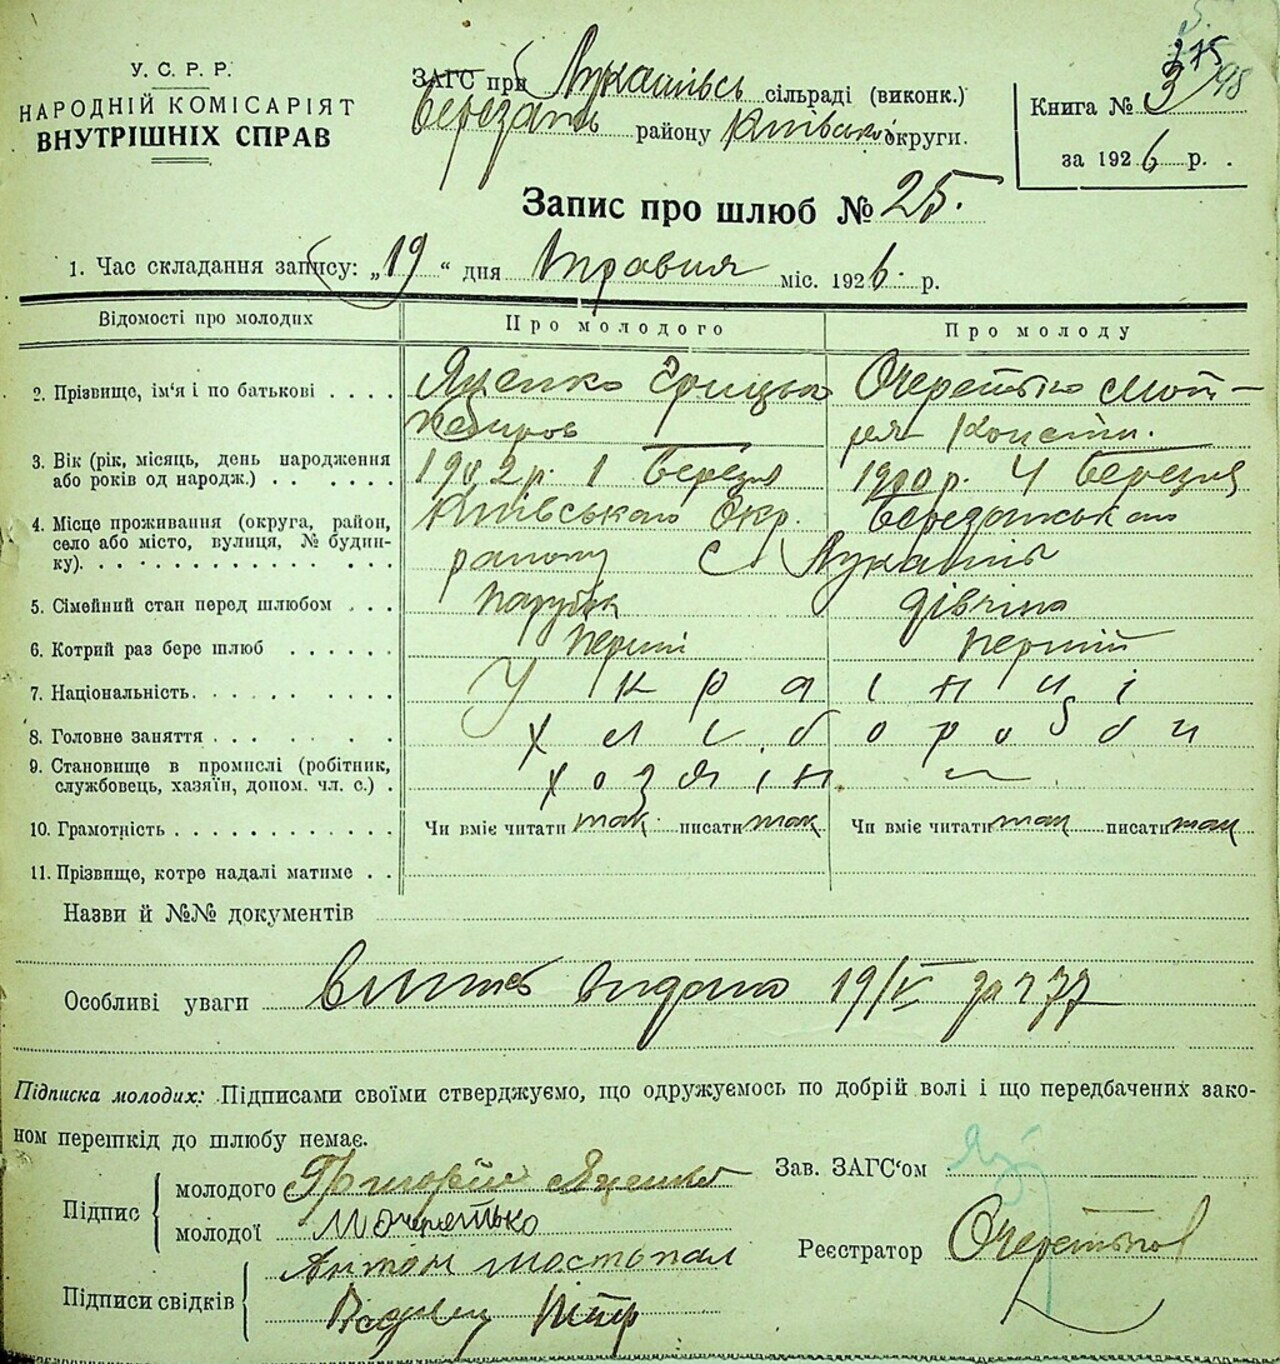 У. С. Р. Р.
НАРОДНІЙ КОМІСАРІЯТ
ВНУТРІШНІХ СПРАВ
ЗАГС при Лукашівсь сільраді (виконк.)
Березань району Київської округи.
Книга № 3
за 1926 р.
Запис про шлюб № 25.
1. Час складання запису: „19“ дня травня міс. 1926. р.
Відомості про молодих Про молодого Про молоду
2. Прізвище, ім'я і по батькові . . . . Яценко Грицько Очеретько Мот-
ря Конст.
3. Вік (рік, місяць, день народження 1902 р. 1 березня 1900 р. 4 березня
або років од народж.) . . . . . . .
4. Місце проживання (округа, район, Київського Окр. Березанського
село або місто, вулиця, № будин- району с Лукашів
ку). . . . . . . . . . . . . . .
5. Сімейний стан перед шлюбом . . . парубок дівчина
6. Котрий раз бере шлюб . . . . . . перший перший
7. Національність. . . . . . . . . . Українці
8. Головне заняття . . . . . . . . хлібороби
9. Становище в промислі (робітник, хозяїн. —
службовець, хазяїн, допом. чл. с.) .
10. Грамотність . . . . . . . . . . . Чи вміє читати так писати так Чи вміє читати так писати так
11. Прізвище, котре надалі матиме . .
Назви й №№ документів
Особливі уваги видано 19/V за №77
Підписка молодих: Підписами своїми стверджуємо, що одружуємось по добрій волі і що передбачених зако-
ном перешкід до шлюбу немає.
Підпис молодого Григорій Яценко
молодої М Очеретько
Зав. ЗАГС'ом
Реєстратор Очеретько
Підписи свідків Антон Мостопал
Петр